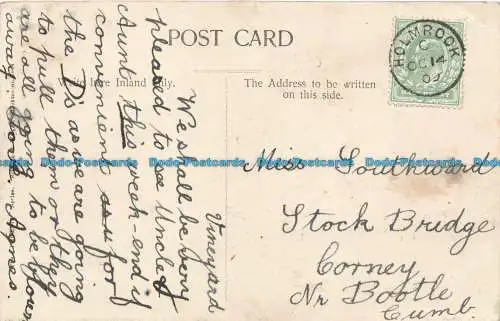 POST CARD
Write here Inland Only.
The Address to be written
on this side.
HOLMROOK
C
OC 14
09
Vineyard
We shall be very
pleasd to see Uncle &
Aunt this week-end if
convenient as for
the D's as we are going
to pull them or they
are all going to be blown
away. Love Agnes.
Miss Southward
Stock Bridge
Corney
Nr Bootle
Cumb.
Dodo-Postcards Dodo-Postcards Dodo-Postcards Dodo-Postcards Dodo-Postcards